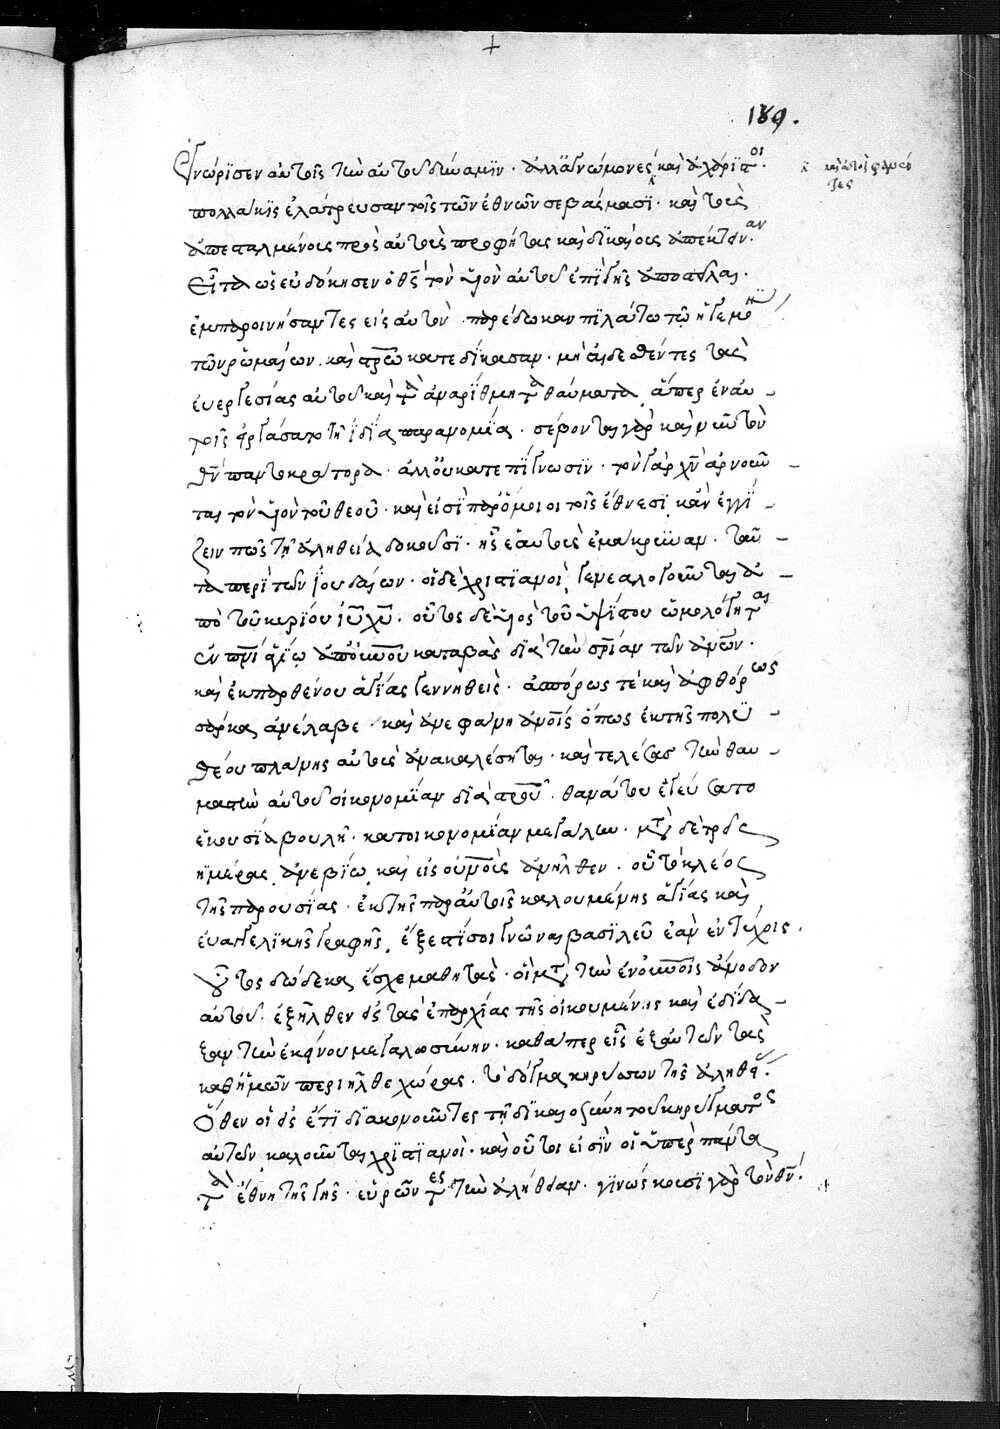 189.
ἐγνώρϊσεν αὐτοῖς τὴν αὐτοῦ δύναμϊν · ἀλλ' ἀγνώμονες καὶ ἀχάρϊστοι ·
καὶ αὐτοὶ φανέντες
πολλάκϊς ἐλάτρευσαν τοῖς τῶν ἐθνῶν σεβάσμασϊ · καὶ τοὺς
ἀπεσταλμένους πρὸς αὐτοὺς προφήτας καὶ δϊκαίους ἀπέκτειναν ·
Εἶτα ὡς εὐδόκησεν ὁ θς̄ τὸν ὑϊὸν αὐτοῦ ἐπὶ γῆς ἀποστεῖλαι ·
ἐμπαροινήσαντες εἰς αὐτὸν · παρέδωκαν πϊλάτω τῷ ἡγεμόνϊ
τῶν ῥωμαίων · καὶ στρω̄ κατεδίκασαν · μὴ αἰδεσθέντες τὰς
ἐυεργεσίας αὐτοῦ καὶ τὰ ἀναρίθμητα θαύματα ἅπερ ἐν αὐ-
τοῖς ἐργάσατο τῇ ἰδίᾳ παρανομίᾳ · σέβονται γὰρ καὶ νῦν τὸν
θν̄ παντοκράτορα · ἀλλ' οὐ κατ' επίγνωσϊν · τὸν γὰρ χν̄ ἀρνοῦν-
ται τὸν ὑϊὸν τοῦ θεοῦ · καὶ εἰσὶ παρόμοιοι τοῖς ἔθνεσϊ κἂν ἐγγί-
ζειν πως τῇ ἀληθείᾳ δοκοῦσϊ · ἧς ἑαυτοὺς ἐμάκρυναν · ταῦ-
τα περὶ τῶν ϊουδαίων · οἱ δὲ χρϊστϊανοὶ γενεαλογοῦνται ἀ-
πὸ τοῦ κυρίου ιῡ χῡ · οὗτος δὲ ὁ ὑϊὸς τοῦ ὑψίστου ὡμολόγηται
ἐν πνῑ ἁγίῳ ἀπ' οὐνοῦ καταβὰς διὰ τὴν σρίαν τῶν ἀνῶν ·
καὶ ἐκ παρθένου ἁγίας γεννηθεὶς · ἀσπόρως τὲ καὶ ἀφθόρως
σάρκα ἀνέλαβε · καὶ ἀνεφάνη ἀνοις ὅπως ἐκ τῆς πολυ-
θέου πλάνης αὐτοὺς ἀνακαλέσηται · καὶ τελέσας τὴν θαυ-
μαστὴν αὐτοῦ οἰκονομίαν διὰ στροῦ · θανάτου ἐγεύσατο
ἑκουσίᾳ βουλῇ · κατ' οἰκονομίαν μεγάλην · μετὰ δὲ τρεῖς
ἡμέρας ἀνεβίω καὶ εἰς οὐνοὺς ἀνῆλθεν · οὗ τὸ κλέος
τῆς παρουσίας · ἐκ τῆς παρ' αὐτοῖς καλουμένης ἁγίας καὶ
ἐυαγγελϊκῆς γραφῆς ἔξεστί σοι γνῶναι βασϊλεῦ ἐὰν ἐντύχῃς ·
οὗτος δώδεκα ἔσχε μαθητὰς · οἳ μετὰ τὴν ἐν οὐνοῖς ἄνοδον
αὐτοῦ · ἐξῆλθον εἰς τὰς ἐπαρχίας τῆς οἰκουμένης καὶ ἐδίδα-
ξαν τὴν ἐκείνου μεγαλωσύνην · καθάπερ εἷς ἐξ αὐτῶν τὰς
καθ' ἡμῶν περιῆλθε χώρας · τὸ δόγμα κηρύττων τῆς ἀληθείας ·
Ὅθεν οἱ εἰς ἔτϊ δϊακονοῦντες τῇ δικαιοσύνῃ τοῦ κηρύγματος
αὐτῶν καλοῦνται χρϊστϊανοὶ · καὶ οὗτοι εἰσὶν οἱ ὑπὲρ πάντα
τὰ ἔθνη τῆς γῆς · εὑρόντες τὴν ἀλήθειαν · γϊνώσκουσϊ γὰρ τὸν θν̄ ·